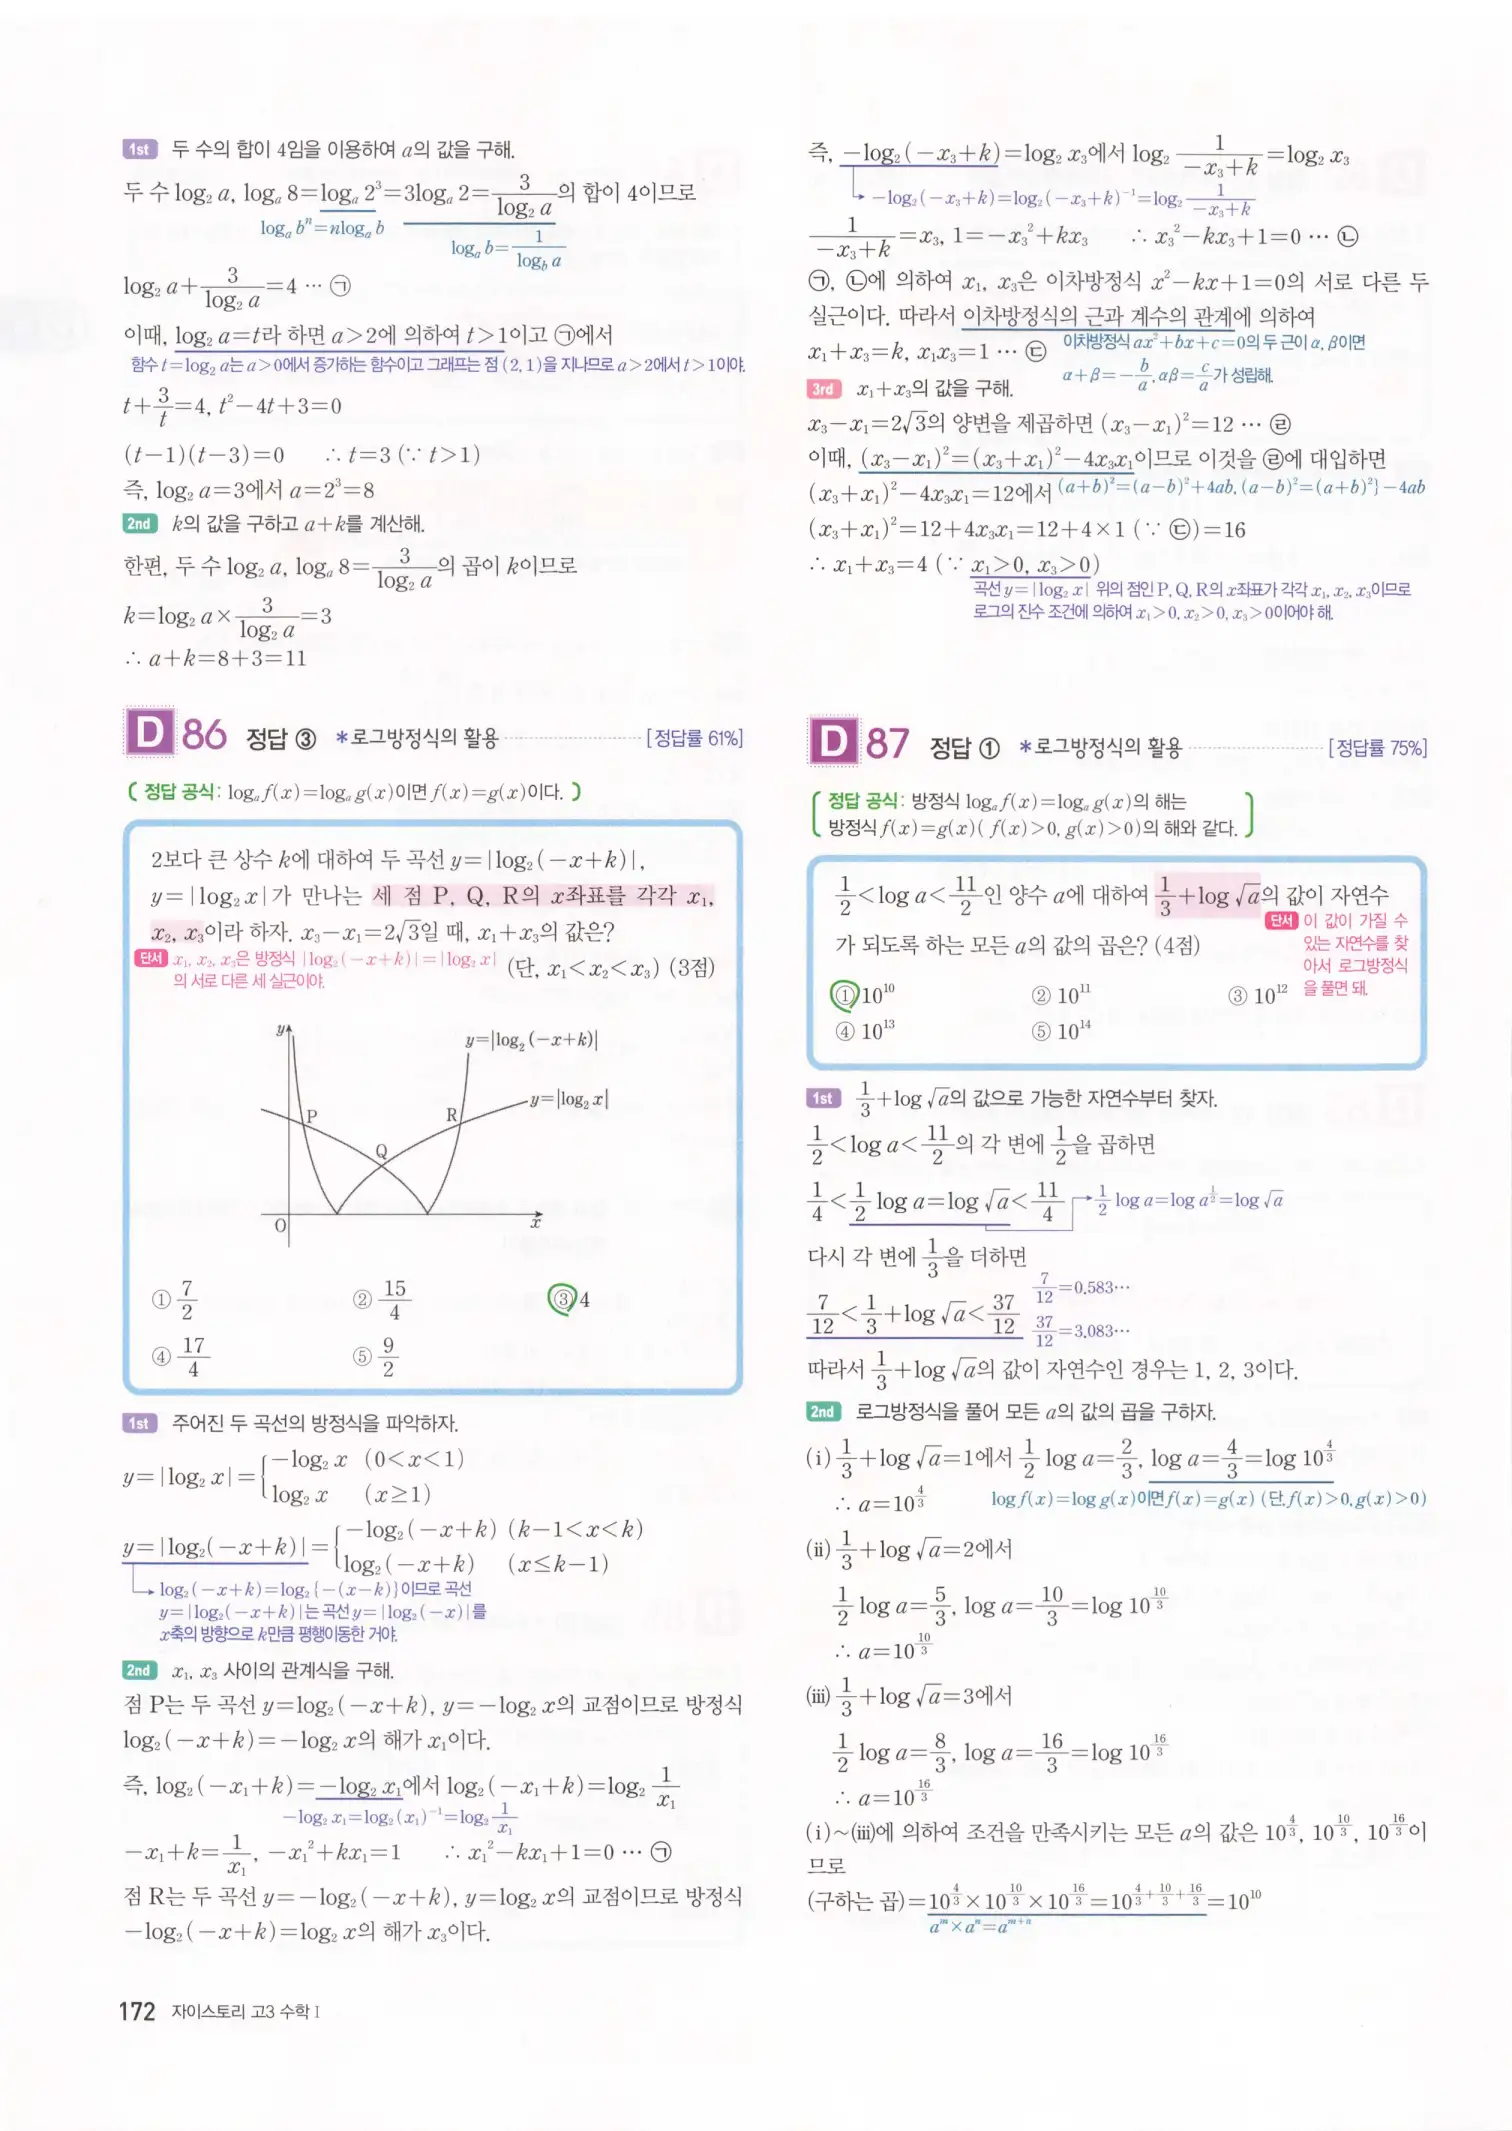 1st 두 수의 합이 4임을 이용하여 a의 값을 구해.
두 수 log₂ a, logₐ 8=logₐ 2³=3logₐ 2=3/(log₂ a)의 합이 4이므로
logₐ bⁿ=nlogₐ b
logₐ b=1/(log_b a)
log₂ a+3/(log₂ a)=4 … ㉠
이때, log₂ a=t라 하면 a>2에 의하여 t>1이고 ㉠에서
함수 t=log₂ a는 a>0에서 증가하는 함수이고 그래프는 점 (2, 1)을 지나므로 a>2에서 t>1이야.
t+3/t=4, t²-4t+3=0
(t-1)(t-3)=0 ∴ t=3 (∵ t>1)
즉, log₂ a=3에서 a=2³=8
2nd k의 값을 구하고 a+k를 계산해.
한편, 두 수 log₂ a, logₐ 8=3/(log₂ a)의 곱이 k이므로
k=log₂ a×3/(log₂ a)=3
∴ a+k=8+3=11
D 86 정답 ③ *로그방정식의 활용 [정답률 61%]
( 정답 공식: logₐ f(x)=logₐ g(x)이면 f(x)=g(x)이다. )
2보다 큰 상수 k에 대하여 두 곡선 y=|log₂(-x+k)|,
y=|log₂ x|가 만나는 세 점 P, Q, R의 x좌표를 각각 x₁,
x₂, x₃이라 하자. x₃-x₁=2√3일 때, x₁+x₃의 값은?
단서 x₁, x₂, x₃은 방정식 |log₂(-x+k)|=|log₂ x|
의 서로 다른 세 실근이야.
(단, x₁<x₂<x₃) (3점)
y
y=|log₂(-x+k)|
y=|log₂ x|
P
R
Q
O
x
① 7/2 ② 15/4 ③ 4
④ 17/4 ⑤ 9/2
1st 주어진 두 곡선의 방정식을 파악하자.
y=|log₂ x|={-log₂ x (0<x<1)
log₂ x (x≥1)
y=|log₂(-x+k)|={-log₂(-x+k) (k-1<x<k)
log₂(-x+k) (x≤k-1)
log₂(-x+k)=log₂{-(x-k)}이므로 곡선
y=|log₂(-x+k)|는 곡선 y=|log₂(-x)|를
x축의 방향으로 k만큼 평행이동한 거야.
2nd x₁, x₃ 사이의 관계식을 구해.
점 P는 두 곡선 y=log₂(-x+k), y=-log₂ x의 교점이므로 방정식
log₂(-x+k)=-log₂ x의 해가 x₁이다.
즉, log₂(-x₁+k)=-log₂ x₁에서 log₂(-x₁+k)=log₂ 1/x₁
-log₂ x₁=log₂(x₁)⁻¹=log₂ 1/x₁
-x₁+k=1/x₁, -x₁²+kx₁=1 ∴ x₁²-kx₁+1=0 … ㉠
점 R는 두 곡선 y=-log₂(-x+k), y=log₂ x의 교점이므로 방정식
-log₂(-x+k)=log₂ x의 해가 x₃이다.
172 자이스토리 고3 수학 I
즉, -log₂(-x₃+k)=log₂ x₃에서 log₂ 1/(-x₃+k)=log₂ x₃
-log₂(-x₃+k)=log₂(-x₃+k)⁻¹=log₂ 1/(-x₃+k)
1/(-x₃+k)=x₃, 1=-x₃²+kx₃ ∴ x₃²-kx₃+1=0 … ㉡
㉠, ㉡에 의하여 x₁, x₃은 이차방정식 x²-kx+1=0의 서로 다른 두
실근이다. 따라서 이차방정식의 근과 계수의 관계에 의하여
x₁+x₃=k, x₁x₃=1 … ㉢
이차방정식 ax²+bx+c=0의 두 근이 α, β이면
α+β=-b/a, αβ=c/a가 성립해.
3rd x₁+x₃의 값을 구해.
x₃-x₁=2√3의 양변을 제곱하면 (x₃-x₁)²=12 … ㉣
이때, (x₃-x₁)²=(x₃+x₁)²-4x₃x₁이므로 이것을 ㉣에 대입하면
(x₃+x₁)²-4x₃x₁=12에서 (a+b)²=(a-b)²+4ab, (a-b)²=(a+b)²}-4ab
(x₃+x₁)²=12+4x₃x₁=12+4×1 (∵ ㉢)=16
∴ x₁+x₃=4 (∵ x₁>0, x₃>0)
곡선 y=|log₂ x| 위의 점인 P, Q, R의 x좌표가 각각 x₁, x₂, x₃이므로
로그의 진수 조건에 의하여 x₁>0, x₂>0, x₃>0이어야 해.
D 87 정답 ① *로그방정식의 활용 [정답률 75%]
정답 공식: 방정식 logₐ f(x)=logₐ g(x)의 해는
방정식 f(x)=g(x)( f(x)>0, g(x)>0)의 해와 같다.
1/2<log a<11/2인 양수 a에 대하여 1/3+log √a의 값이 자연수
가 되도록 하는 모든 a의 값의 곱은? (4점)
단서 이 값이 가질 수
있는 자연수를 찾
아서 로그방정식
을 풀면 돼.
① 10¹⁰ ② 10¹¹ ③ 10¹²
④ 10¹³ ⑤ 10¹⁴
1st 1/3+log √a의 값으로 가능한 자연수부터 찾자.
1/2<log a<11/2의 각 변에 1/2을 곱하면
1/4<1/2 log a=log √a<11/4 1/2 log a=log a^(1/2)=log √a
다시 각 변에 1/3을 더하면
7/12<1/3+log √a<37/12
7/12=0.583…
37/12=3.083…
따라서 1/3+log √a의 값이 자연수인 경우는 1, 2, 3이다.
2nd 로그방정식을 풀어 모든 a의 값의 곱을 구하자.
(i) 1/3+log √a=1에서 1/2 log a=2/3, log a=4/3=log 10^(4/3)
∴ a=10^(4/3) log f(x)=log g(x)이면 f(x)=g(x) (단, f(x)>0, g(x)>0)
(ii) 1/3+log √a=2에서
1/2 log a=5/3, log a=10/3=log 10^(10/3)
∴ a=10^(10/3)
(iii) 1/3+log √a=3에서
1/2 log a=8/3, log a=16/3=log 10^(16/3)
∴ a=10^(16/3)
(i)~(iii)에 의하여 조건을 만족시키는 모든 a의 값은 10^(4/3), 10^(10/3), 10^(16/3)이
므로
(구하는 곱)=10^(4/3)×10^(10/3)×10^(16/3)=10^(4/3+10/3+16/3)=10¹⁰
aᵐ×aⁿ=aᵐ⁺ⁿ